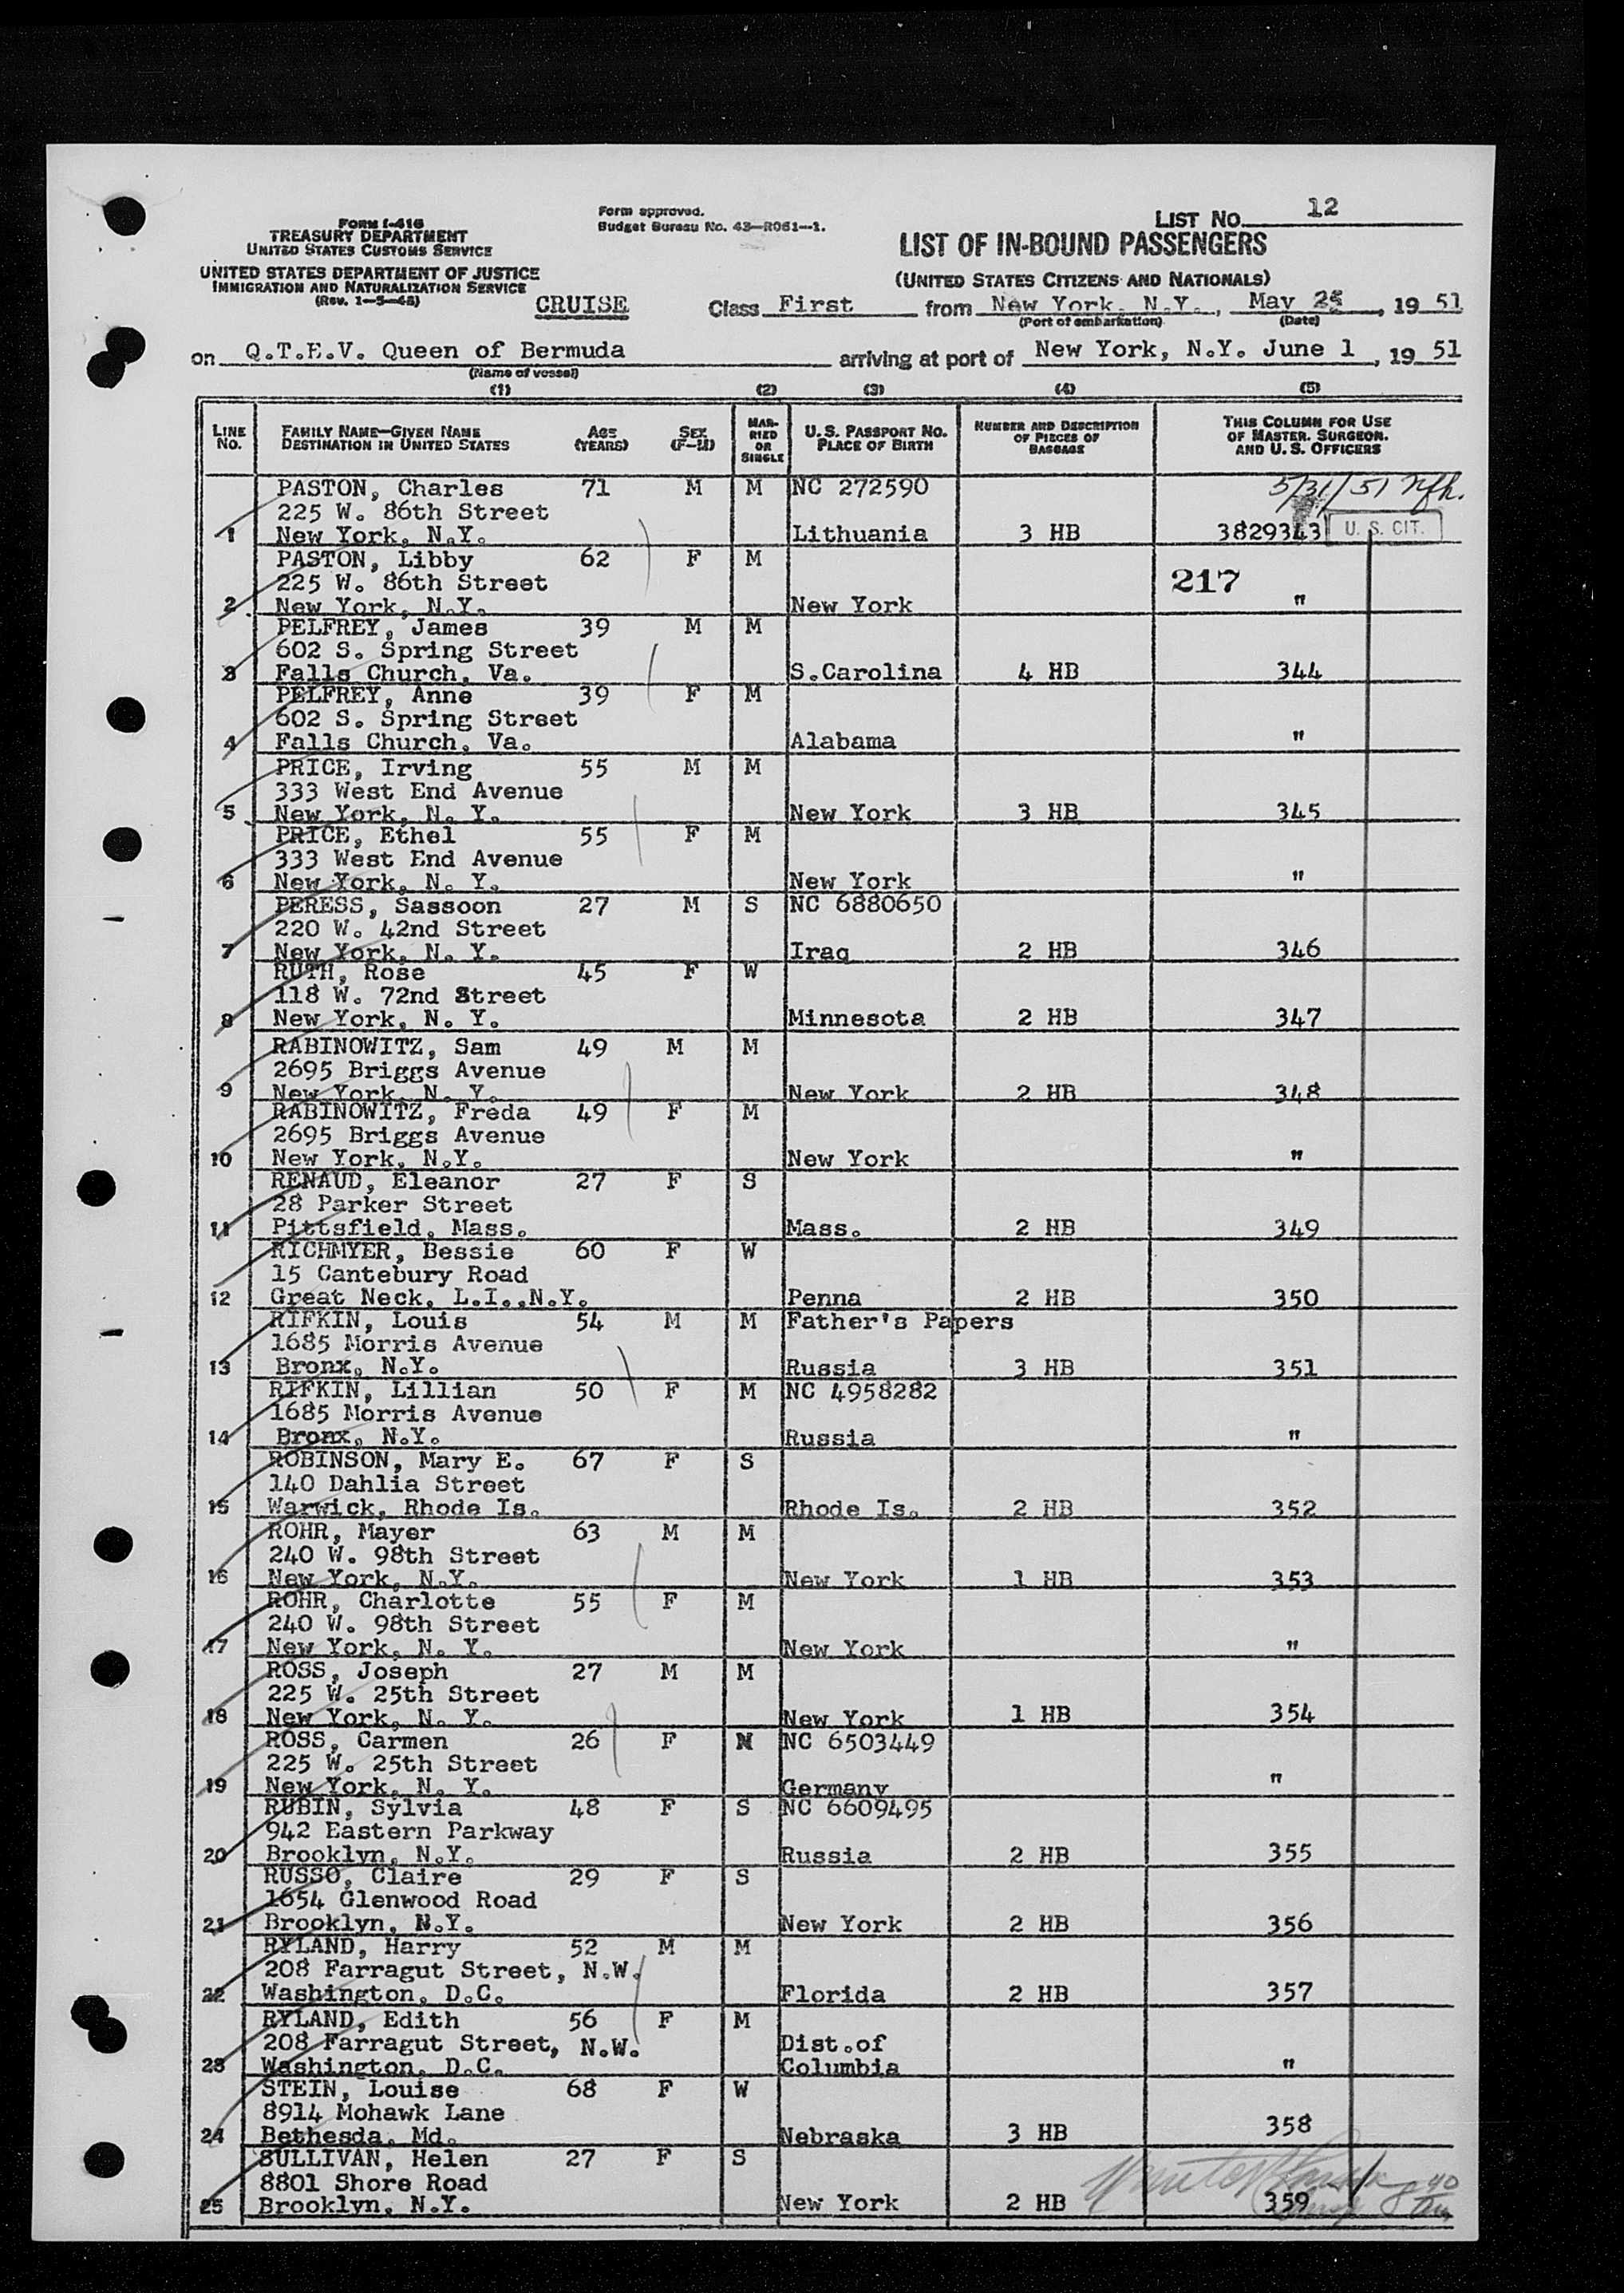 FORM I-416
TREASURY DEPARTMENT
UNITED STATES CUSTOMS SERVICE
UNITED STATES DEPARTMENT OF JUSTICE
IMMIGRATION AND NATURALIZATION SERVICE
(Rev. 1-5-48)
Form approved.
Budget Bureau No. 43-R051-1.
LIST NO. 12
LIST OF IN-BOUND PASSENGERS
(UNITED STATES CITIZENS AND NATIONALS)
CRUISE Class First from New York, N.Y., May 25, 19 51
(Port of embarkation) (Date)
on Q.T.E.V. Queen of Bermuda arriving at port of New York, N.Y. June 1, 19 51
(Name of vessel)
(1) (2) (3) (4) (5)
LINE NO. FAMILY NAME—GIVEN NAME DESTINATION IN UNITED STATES AGE (YEARS) SEX (F-M) MARRIED OR SINGLE U. S. PASSPORT NO. PLACE OF BIRTH NUMBER AND DESCRIPTION OF PIECES OF BAGGAGE THIS COLUMN FOR USE OF MASTER, SURGEON, AND U. S. OFFICERS
PASTON, Charles 71 M M NC 272590 5/31/51
225 W. 86th Street
1 New York, N.Y. Lithuania 3 HB 3829343 U. S. CIT.
PASTON, Libby 62 F M
225 W. 86th Street 217
2 New York, N.Y. New York "
PELFREY, James 39 M M
602 S. Spring Street
3 Falls Church, Va. S.Carolina 4 HB 344
PELFREY, Anne 39 F M
602 S. Spring Street
4 Falls Church, Va. Alabama "
PRICE, Irving 55 M M
333 West End Avenue
5 New York, N. Y. New York 3 HB 345
PRICE, Ethel 55 F M
333 West End Avenue
6 New York, N. Y. New York "
PERESS, Sassoon 27 M S NC 6880650
220 W. 42nd Street
7 New York, N. Y. Iraq 2 HB 346
RUTH, Rose 45 F W
118 W. 72nd Street
8 New York, N. Y. Minnesota 2 HB 347
RABINOWITZ, Sam 49 M M
2695 Briggs Avenue
9 New York, N. Y. New York 2 HB 348
RABINOWITZ, Freda 49 F M
2695 Briggs Avenue
10 New York, N.Y. New York "
RENAUD, Eleanor 27 F S
28 Parker Street
11 Pittsfield, Mass. Mass. 2 HB 349
RICHMYER, Bessie 60 F W
15 Cantebury Road
12 Great Neck, L.I.,N.Y. Penna 2 HB 350
RIFKIN, Louis 54 M M Father's Papers
1685 Morris Avenue
13 Bronx, N.Y. Russia 3 HB 351
RIFKIN, Lillian 50 F M NC 4958282
1685 Morris Avenue
14 Bronx, N.Y. Russia "
ROBINSON, Mary E. 67 F S
140 Dahlia Street
15 Warwick, Rhode Is. Rhode Is. 2 HB 352
ROHR, Mayer 63 M M
240 W. 98th Street
16 New York, N.Y. New York 1 HB 353
ROHR, Charlotte 55 F M
240 W. 98th Street
17 New York, N. Y. New York "
ROSS, Joseph 27 M M
225 W. 25th Street
18 New York, N. Y. New York 1 HB 354
ROSS, Carmen 26 F M NC 6503449
225 W. 25th Street
19 New York, N. Y. Germany "
RUBIN, Sylvia 48 F S NC 6609495
942 Eastern Parkway
20 Brooklyn, N.Y. Russia 2 HB 355
RUSSO, Claire 29 F S
1654 Glenwood Road
21 Brooklyn, N.Y. New York 2 HB 356
RYLAND, Harry 52 M M
208 Farragut Street, N.W.
22 Washington, D.C. Florida 2 HB 357
RYLAND, Edith 56 F M
208 Farragut Street, N.W. Dist.of
23 Washington, D.C. Columbia "
STEIN, Louise 68 F W
8914 Mohawk Lane
24 Bethesda, Md. Nebraska 3 HB 358
SULLIVAN, Helen 27 F S
8801 Shore Road
25 Brooklyn, N.Y. New York 2 HB 359